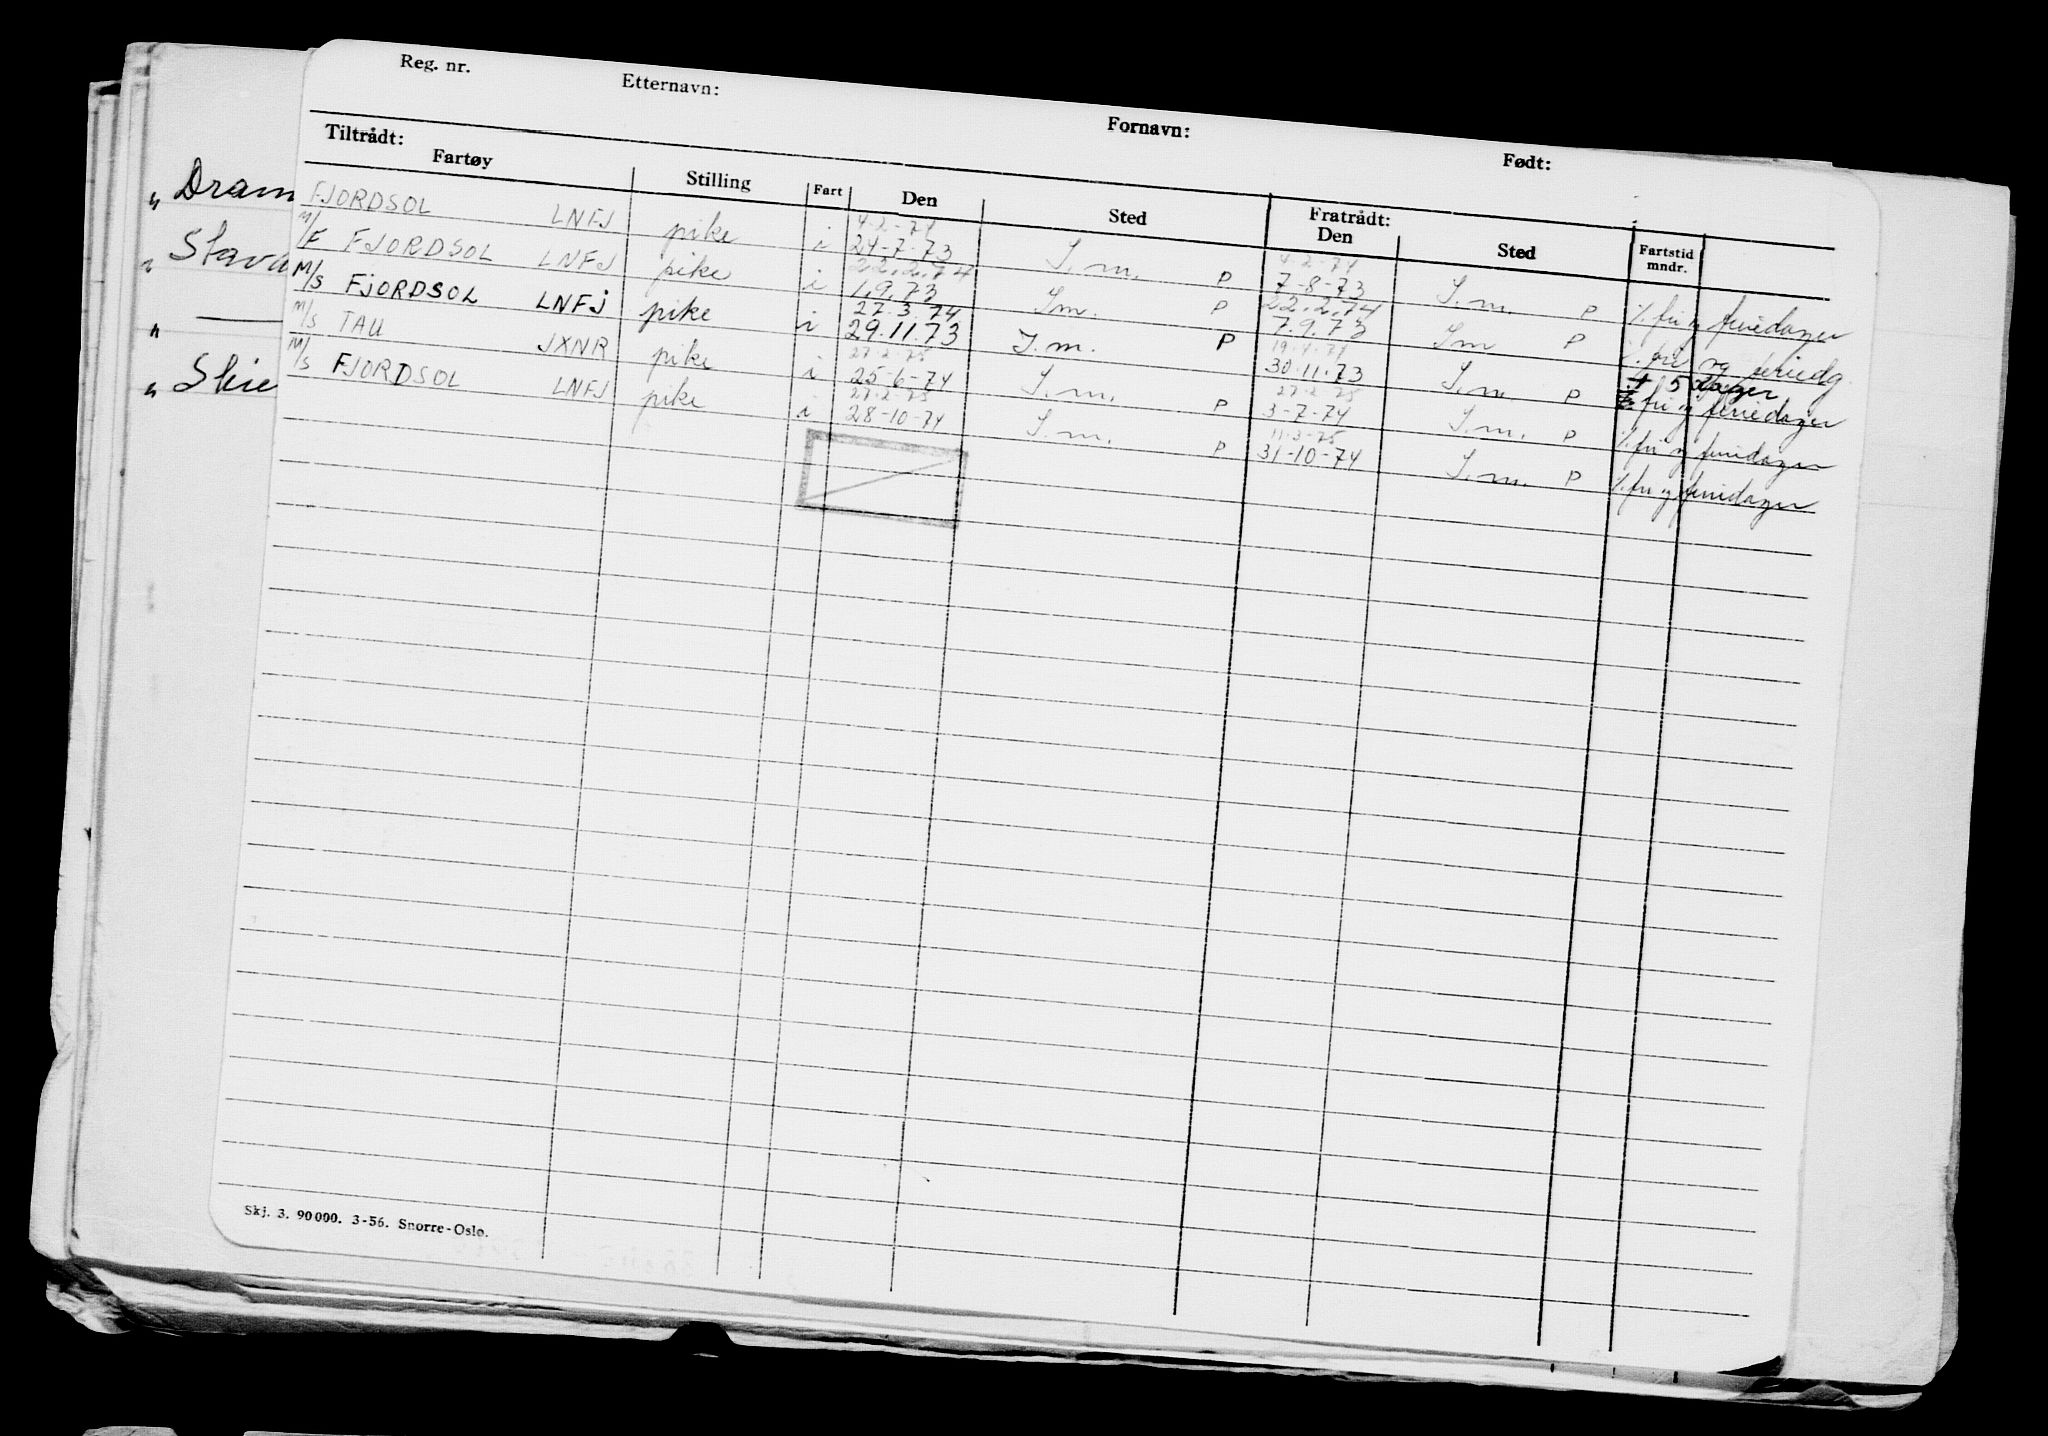 Reg. nr. Etternavn: Fornavn: Født:
Tiltrådt: Fratrådt:
Fartøy Stilling Fart Den Sted Den Sted Fartstid mndr.
4-2-74 4-2-74
FJORDSOL LNFJ pike i 24-7-73 S.m. P 7-8-73 S.m. P %. fri og feriedager
22.2.74 22.2.74
M/F FJORDSOL LNFJ pike i 1.9.73 Sm. P 7.9.73 Sm P %. fri og feriedg.
27.3.74 19-4-74 + 5 dager
M/S FJORDSOL LNFJ pike i 29.11.73 S.m. P 30.11.73 S.m P fri og feriedager
27-2-75 27-2-75
M/S TAU JXNR pike i 25-6-74 S.m. P 3-7-74 S.m. P %. fri og feriedager
27-2-75 11-3-75
M/S FJORDSOL LNFJ pike i 28-10-74 S.m. P 31-10-74 S.m. P %. fri og feriedager
" Dram
" Stava
"
" Skie
Skj. 3. 90000. 3-56. Snorre-Oslo.